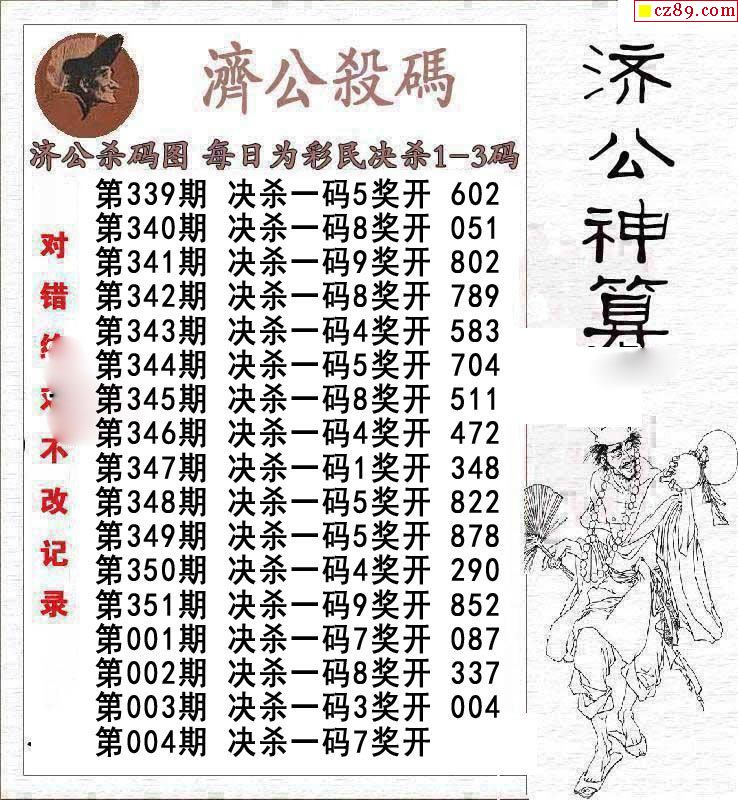 cz89.com
濟公殺碼
济公杀码图 每日为彩民决杀1-3码
第339期 决杀一码5奖开 602
第340期 决杀一码8奖开 051
第341期 决杀一码9奖开 802
第342期 决杀一码8奖开 789
第343期 决杀一码4奖开 583
第344期 决杀一码5奖开 704
第345期 决杀一码8奖开 511
第346期 决杀一码4奖开 472
第347期 决杀一码1奖开 348
第348期 决杀一码5奖开 822
第349期 决杀一码5奖开 878
第350期 决杀一码4奖开 290
第351期 决杀一码9奖开 852
第001期 决杀一码7奖开 087
第002期 决杀一码8奖开 337
第003期 决杀一码3奖开 004
第004期 决杀一码7奖开
对错
不改记录
济公神算